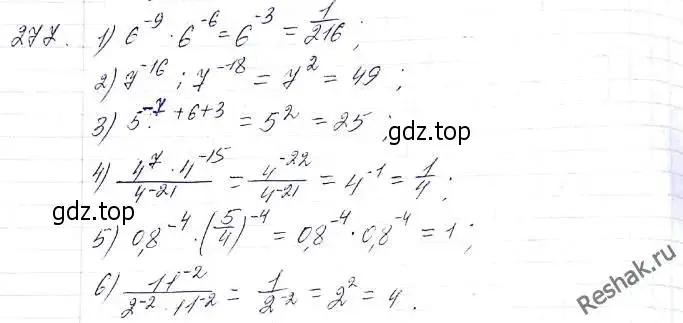 277. 1) 6⁻⁹ · 6⁻⁶ = 6⁻³ = 1/216 ;
2) 7⁻¹⁶ : 7⁻¹⁸ = 7² = 49 ;
3) 5⁻⁷⁺⁶⁺³ = 5² = 25 ;
gdz.top
4) (4⁷ · 4⁻¹⁵)/4⁻²¹ = 4⁻²²/4⁻²¹ = 4⁻¹ = 1/4 ;
gdz.top
5) 0,8⁻⁴ · (5/4)⁻⁴ = 0,8⁻⁴ · 0,8⁻⁴ = 1 ;
6) 11⁻²/(2⁻² · 11⁻²) = 1/2⁻² = 2² = 4 .
Reshak.ru